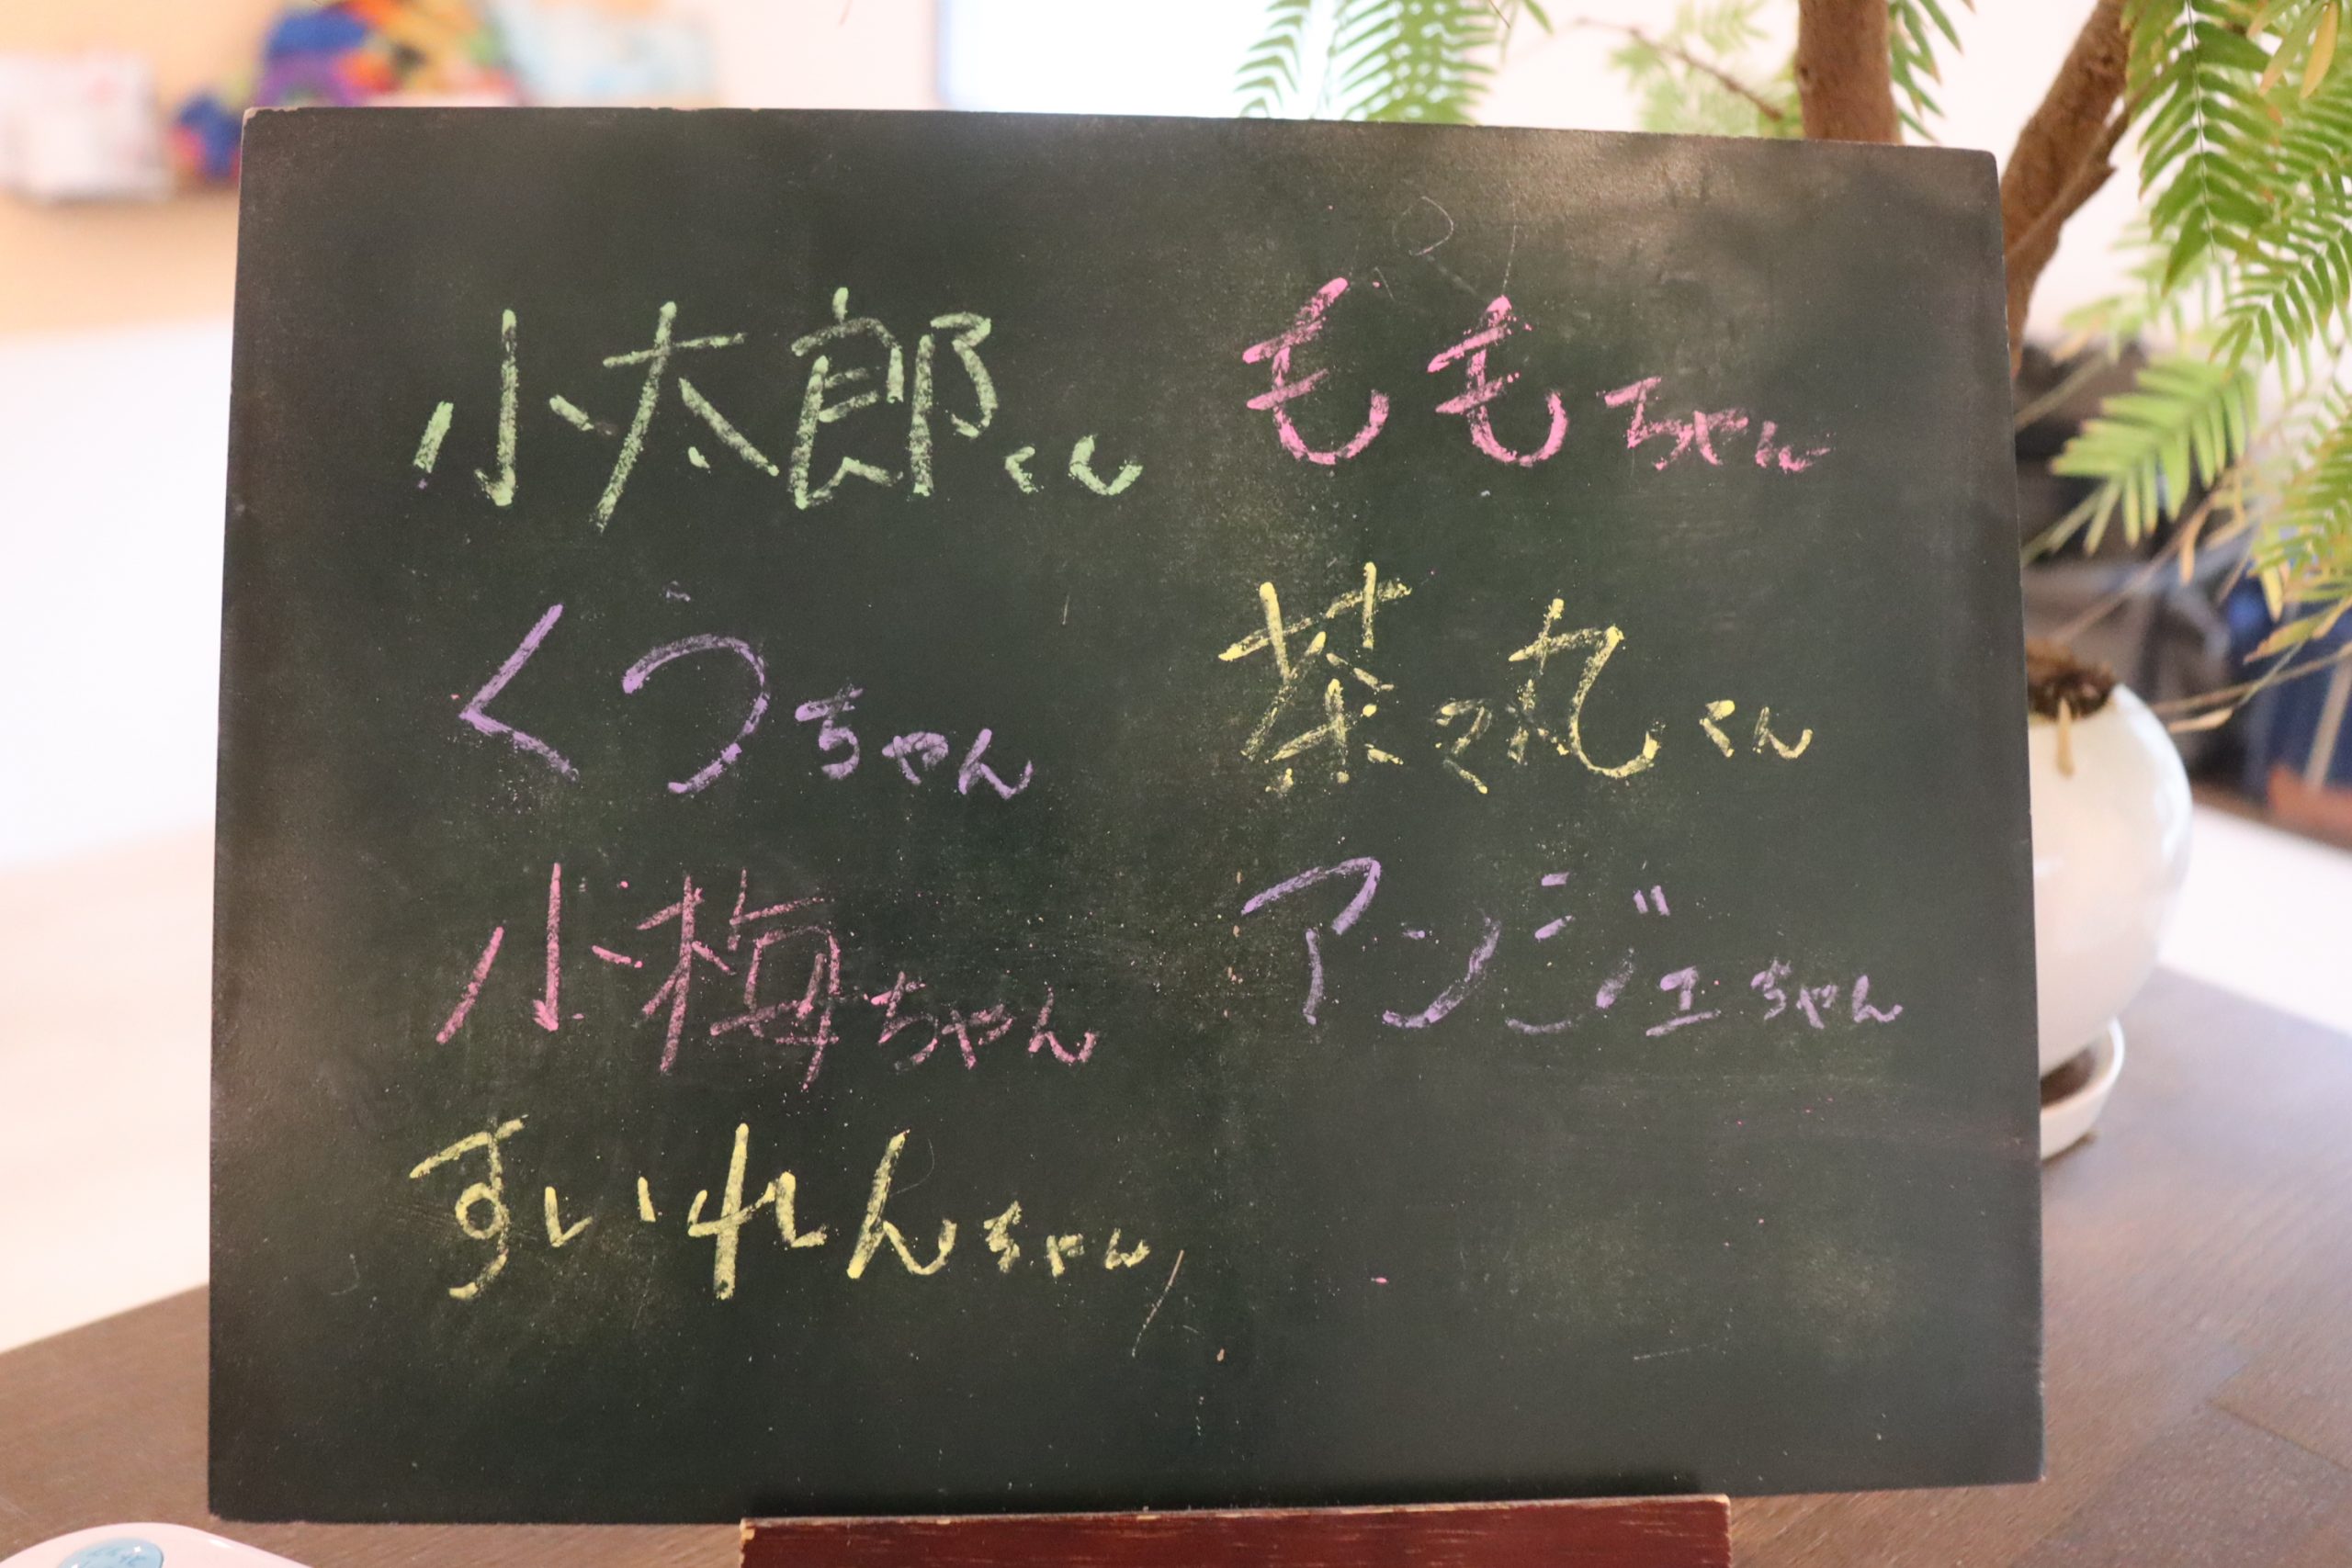 小太郎くん
ももちゃん
くうちゃん
茶々丸くん
小梅ちゃん
アンジェちゃん
すいれんちゃん